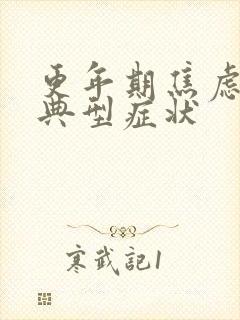 更年期焦虑
典型症状
寒武記1